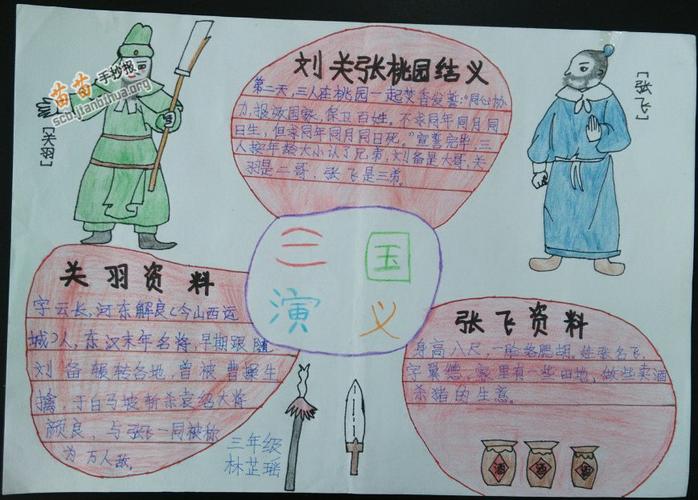 苗苗手抄报
scb.jianbihua.org
[关羽]
刘关张桃园结义
第二天，三人在桃园一起焚香发誓："同心协
力，报效国家，保卫百姓，不求同年同月同
日生，但求同年同月同日死。"宣誓完毕，三
人按年龄大小认了兄弟，刘备是大哥，关
羽是二哥，张飞是三弟。
[张飞]
三国
演义
关羽资料
字云长，河东解良（今山西运
城）人，东汉末年名将，早期跟随
刘备辗转各地，曾被曹操生
擒，于白马坡斩杀袁绍大将
颜良，与张飞一同被称
为万人敌。
三年级
林芷瑶
张飞资料
身高八尺，一脸络腮胡，姓张名飞，
字翼德，家里有一些田地，做些卖酒
杀猪的生意。
酒
酒